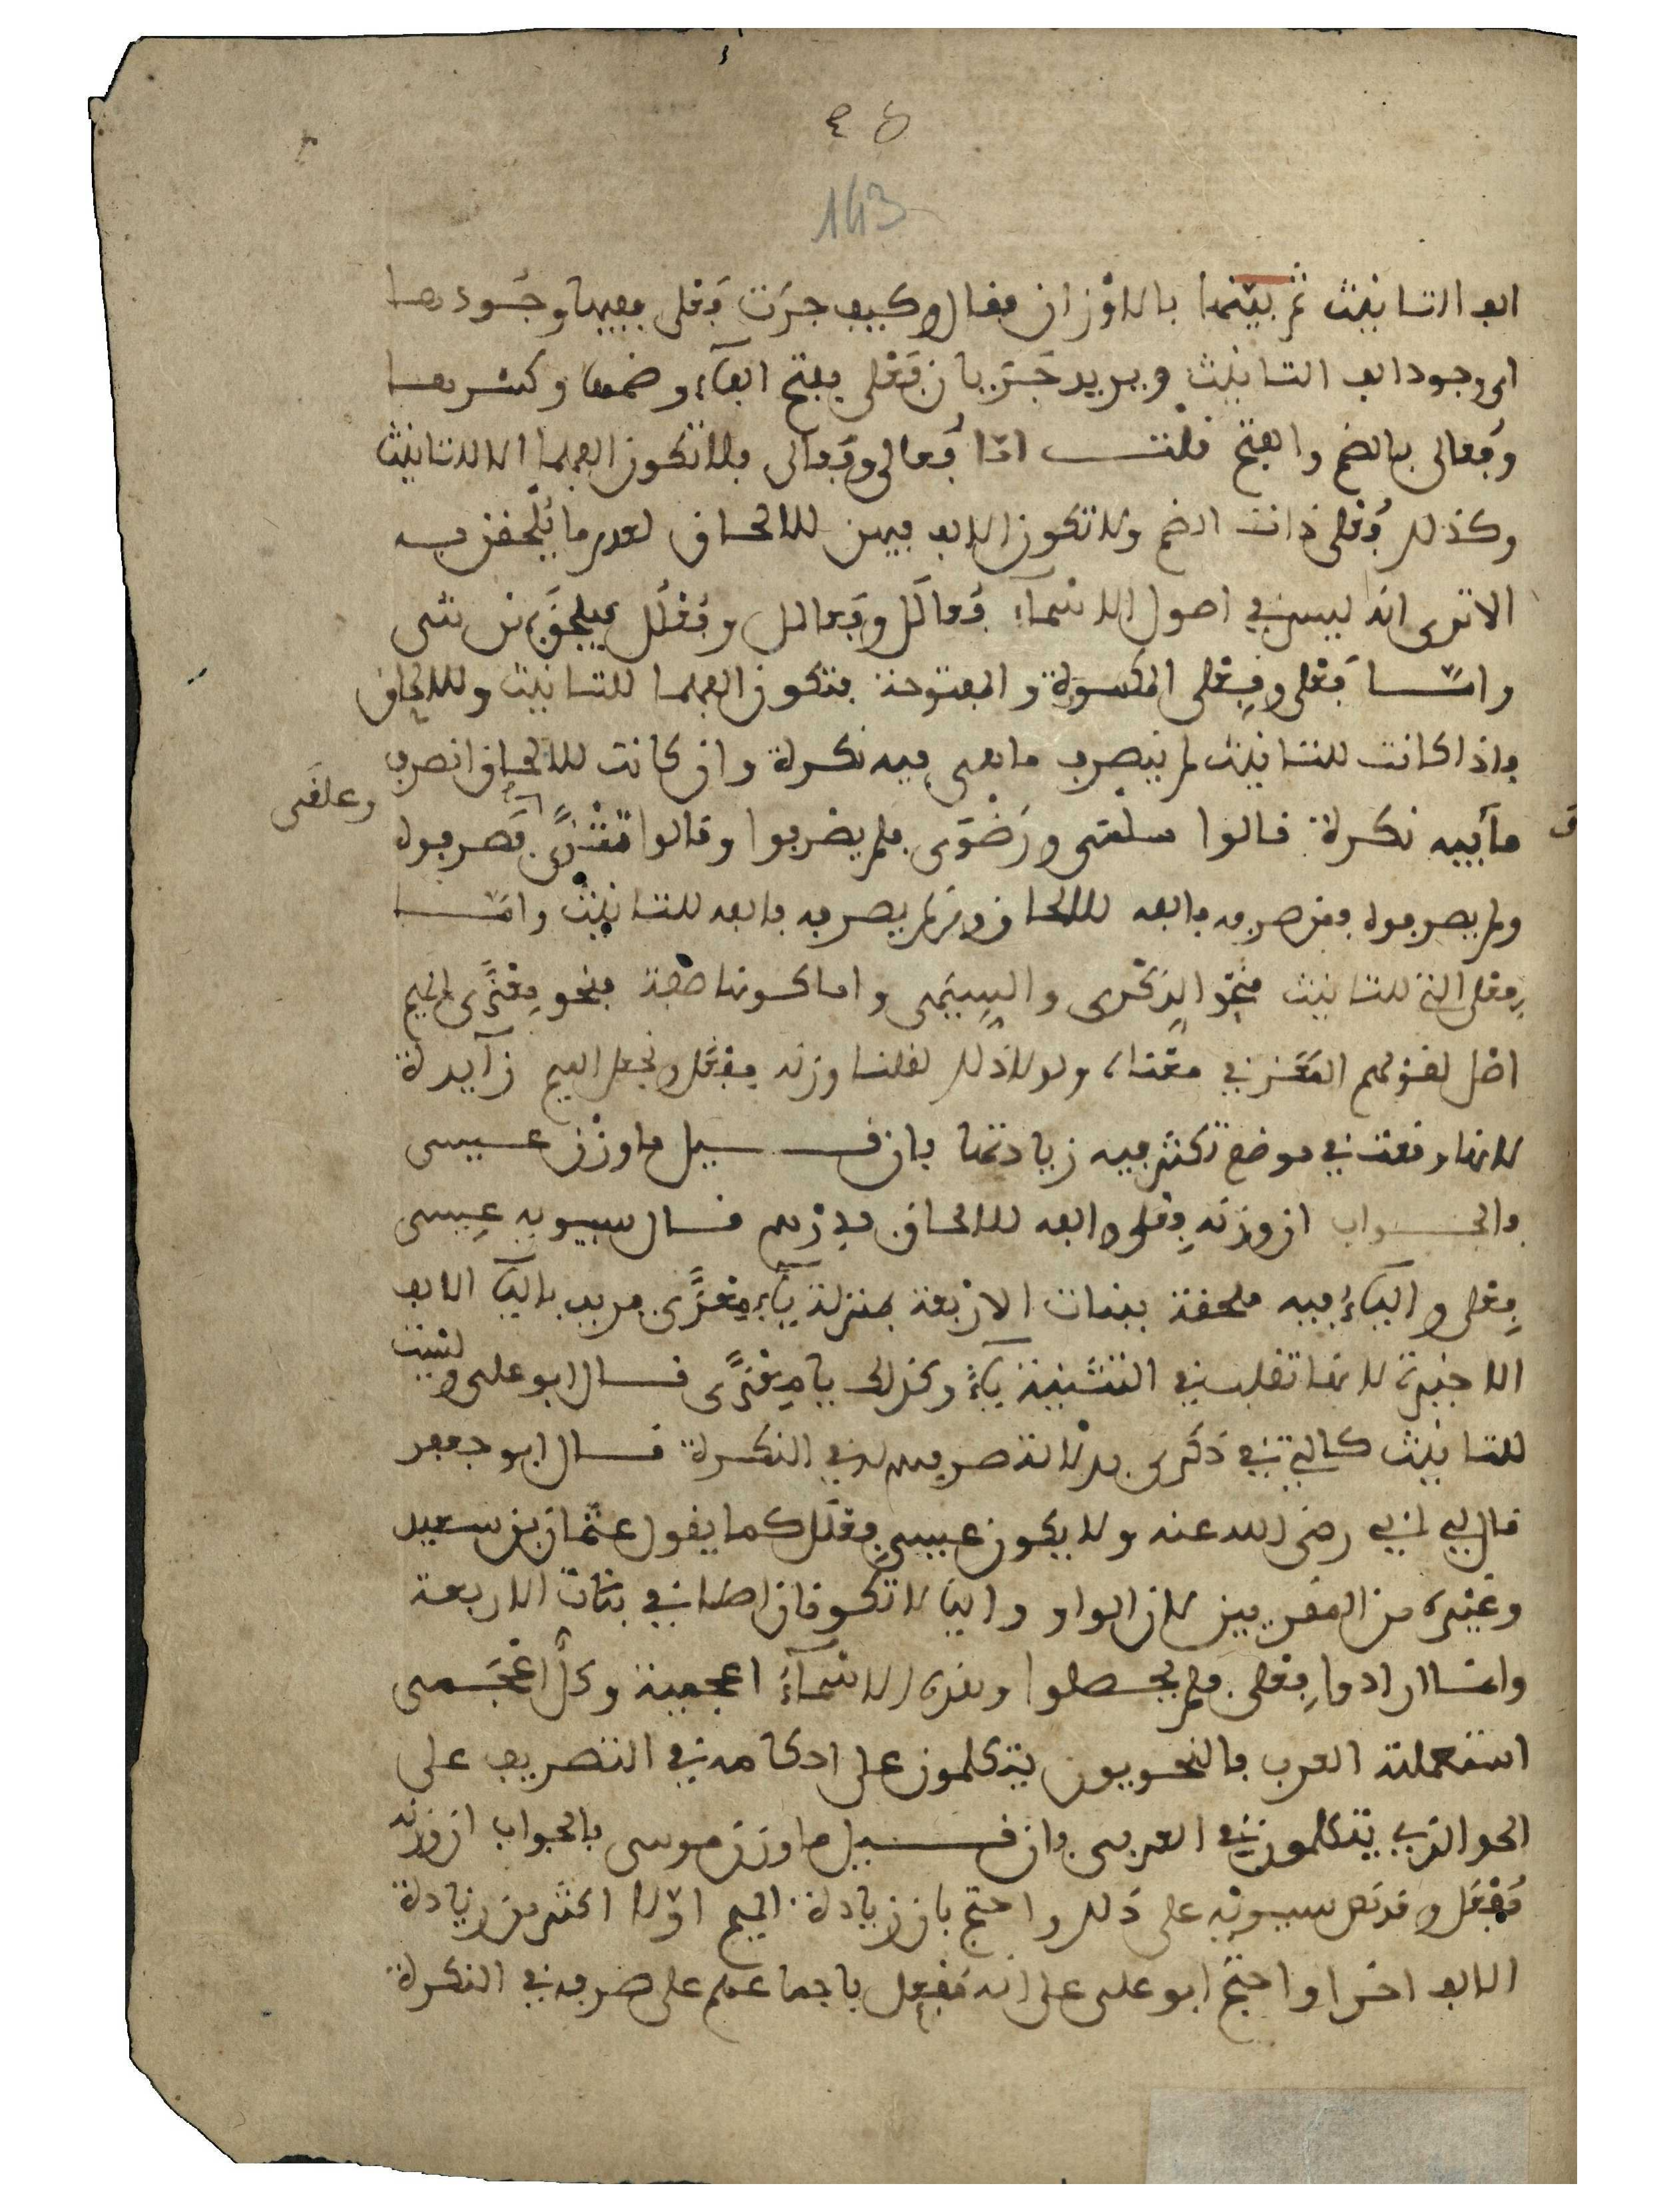 143
الف التانيث ثم بينها بالاوزان فقال وكيف جرت فعلى ففيها وجودها
اى وجود الف التانيث ويريد حيث يات فعلى بفتح الفاء وضمها وكسرها
وفعالى بالضم والفتح قلت اما فعالى وفعالى فلا تكون الفهما الا للتانيث
وكذلك فعلى ذات الضم ولا تكون الالف فيهن للالحاق لعدم ما يلحقن به
الا ترى انه ليس في اصول الاسماء فعالل وفعالل وفعلل فيلحق بهن شى
واما فعلى وفعلى المكسورة والمفتوحة فتكون الفهما للتانيث وللالحاق
فاذا كانت للتانيث لم ينصرف ما هى فيه نكرة وان كانت للالحاق انصرف
ما فيه نكرة قالوا سلمى ورضوى فلم يصرفوا وقالوا تترى فصرفوه
وعلقى
ولم يصرفوه فمن صرفه فالفه للالحاق ومن لم يصرفه فالفه للتانيث واما
فعلى التى للتانيث فنحو الذكرى والسيمى واما كونها ملحقة فنحو معزى الميم
اصل لقولهم المعز في معناه ولولا ذلك لقلنا وزنه مفعل وتجعل الميم زايدة
لانها وقعت في موضع تكثر فيه زيادتها فان قيل ما وزن عيسى
فالجواب ان وزنه فعلى والفه للالحاق قال سيبويه عيسى
فعلى والياء فيه ملحقة ببنات الاربعة بمنزلة ياء معزى يريد بالياء الالف
الاخيرة لانها تقلب في التثنية ياء وكذلك يا معزى قال ابو على وليست
للتانيث كالتي في ذكرى بدلالة صرفهم له في النكرة قال ابو جعفر
قال لي ابي رضى الله عنه ولا يكون عيسى فعلل كما يقول عثمان بن سعيد
وغيره من المقريين لان الواو واليا لا تكونان اصلا في بنات الاربعة
وانما ارادوا فعلى فلم يحصلوا وهذه الاسماء اعجمية وكل اعجمى
استعملته العرب فالنحويون يتكلمون على احكامه في التصريف على
الحد الذي يتكلمون في العربى فان قيل ما وزن موسى فالجواب ان وزنه
مفعل وقد نص سيبويه على ذلك واحتج بان زيادة الميم اولا اكثر من زيادة
الالف اخرا واحتج ابو على على انه مفعل باجماعهم على صرفه في النكرة